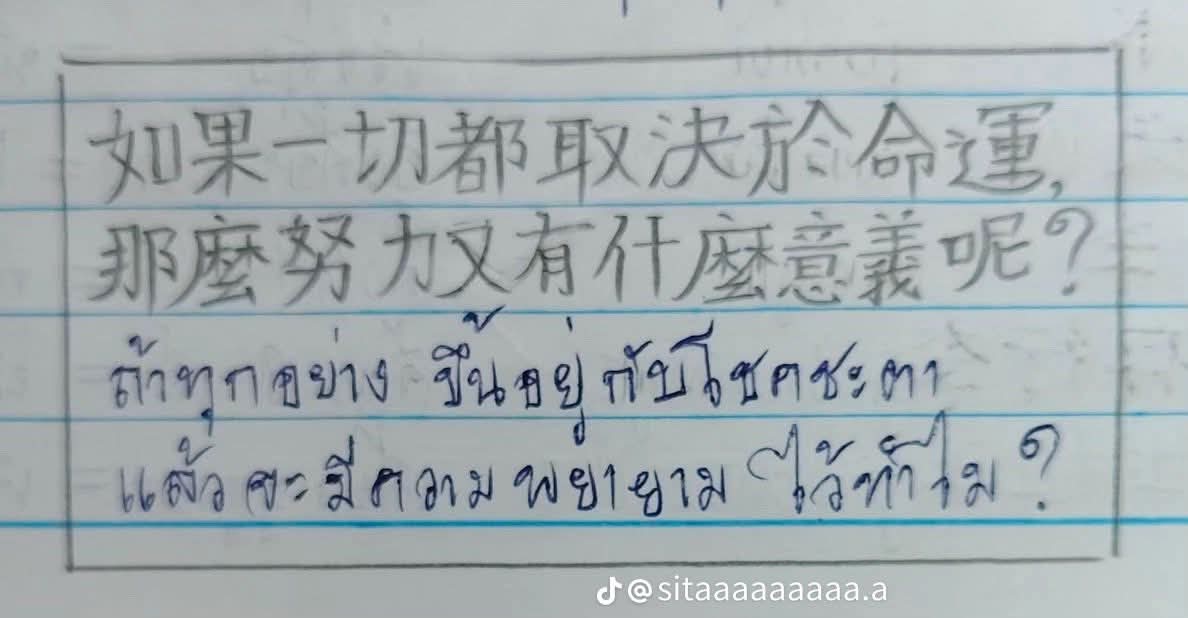 如果一切都取決於命運,
那麼努力又有什麼意義呢?
ถ้าทุกอย่าง ขึ้นอยู่กับโชคชะตา
แล้วจะมีความพยายาม ไว้ทำไม?
@sitaaaaaaaaaa.a